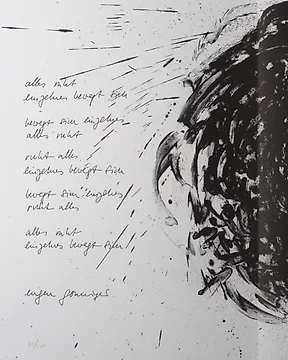 alles ruht
einzelnes bewegt sich
bewegt sich einzelnes
alles ruht
ruht alles
einzelnes bewegt sich
bewegt sich einzelnes
ruht alles
alles ruht
einzelnes bewegt sich
eugen gomringer